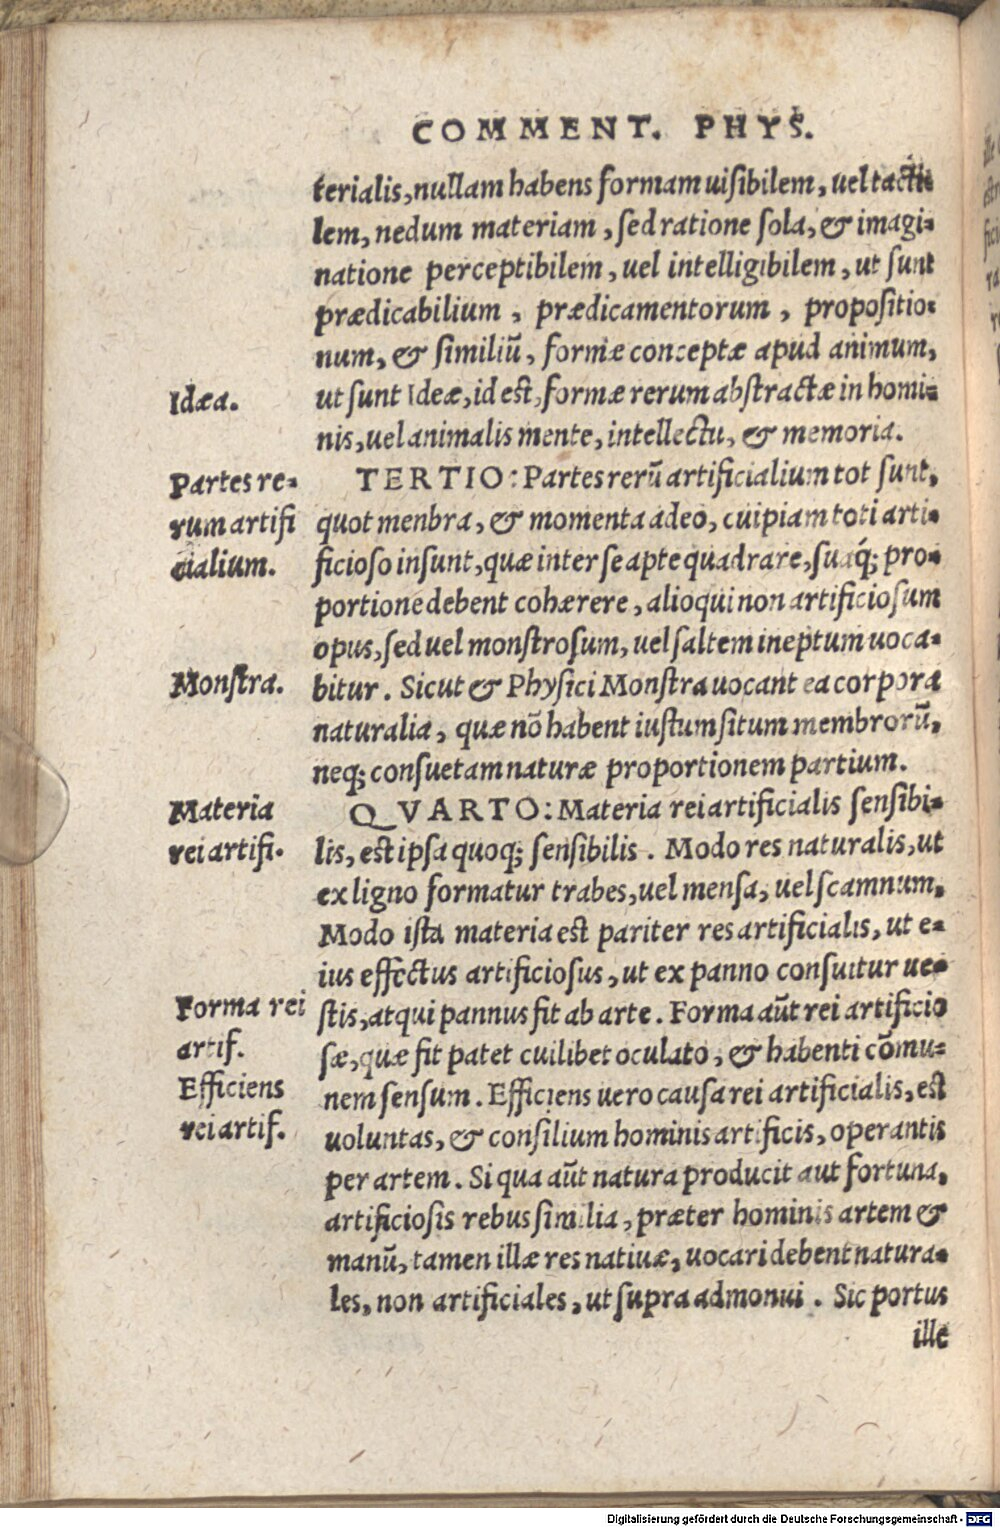 COMMENT. PHYS.
terialis, nullam habens formam uisibilem, uel tacti
lem, nedum materiam, sed ratione sola, & imagi-
natione perceptibilem, uel intelligibilem, ut sunt
prædicabilium, prædicamentorum, propositio-
num, & similiũ, formæ conceptæ apud animum,
Idæa.
ut sunt Ideæ, id est, formæ rerum abstractæ in homi-
nis, uel animalis mente, intellectu, & memoria.
Partes re-
rum artifi
cialium.
TERTIO: Partes rerũ artificialium tot sunt,
quot menbra, & momenta adeo, cuipiam toti arti-
ficioso insunt, quæ inter se apte quadrare, suaq́; pro-
portione debent cohærere, alioqui non artificiosum
opus, sed uel monstrosum, uel saltem ineptum uoca-
Monstra.
bitur. Sicut & Physici Monstra uocant ea corpora
naturalia, quæ nõ habent iustum situm membrorũ,
neq; consuetam naturæ proportionem partium.
Materia
rei artifi.
QVARTO: Materia rei artificialis sensibi-
lis, est ipsa quoq; sensibilis. Modo res naturalis, ut
ex ligno formatur trabes, uel mensa, uel scamnum,
Modo ista materia est pariter res artificialis, ut e-
ius effectus artificiosus, ut ex panno consuitur ue-
Forma rei
artif.
stis, atqui pannus fit ab arte. Forma aũt rei artificio
sæ, quæ fit patet cuilibet oculato, & habenti cõmu-
Efficiens
rei artif.
nem sensum. Efficiens uero causa rei artificialis, est
uoluntas, & consilium hominis artificis, operantis
per artem. Si qua aũt natura producit aut fortuna,
artificiosis rebus similia, præter hominis artem &
manũ, tamen illæ res natiuæ, uocari debent natura-
les, non artificiales, ut supra admonui. Sic portus
ille
Digitalisierung gefördert durch die Deutsche Forschungsgemeinschaft - DFG